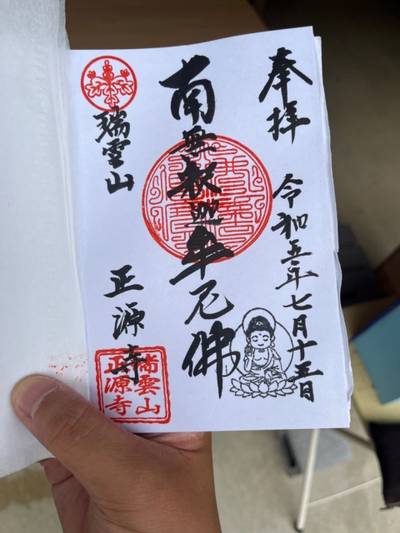 奉拝
令和五年七月十五日
南無釈迦牟尼佛
瑞雲山
正源寺
瑞雲山
正源寺